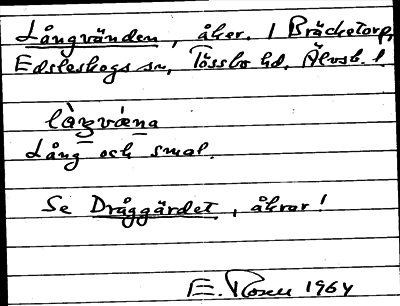 Långvänden, åker. 1 Bräcketorp,
Edsleskogs sn, Tössbo hd, Älvsb. l.
là̀ŋvæ̀na
Lång och smal.
Se Dråggärdet, åkrar!
E. Rosell 1964